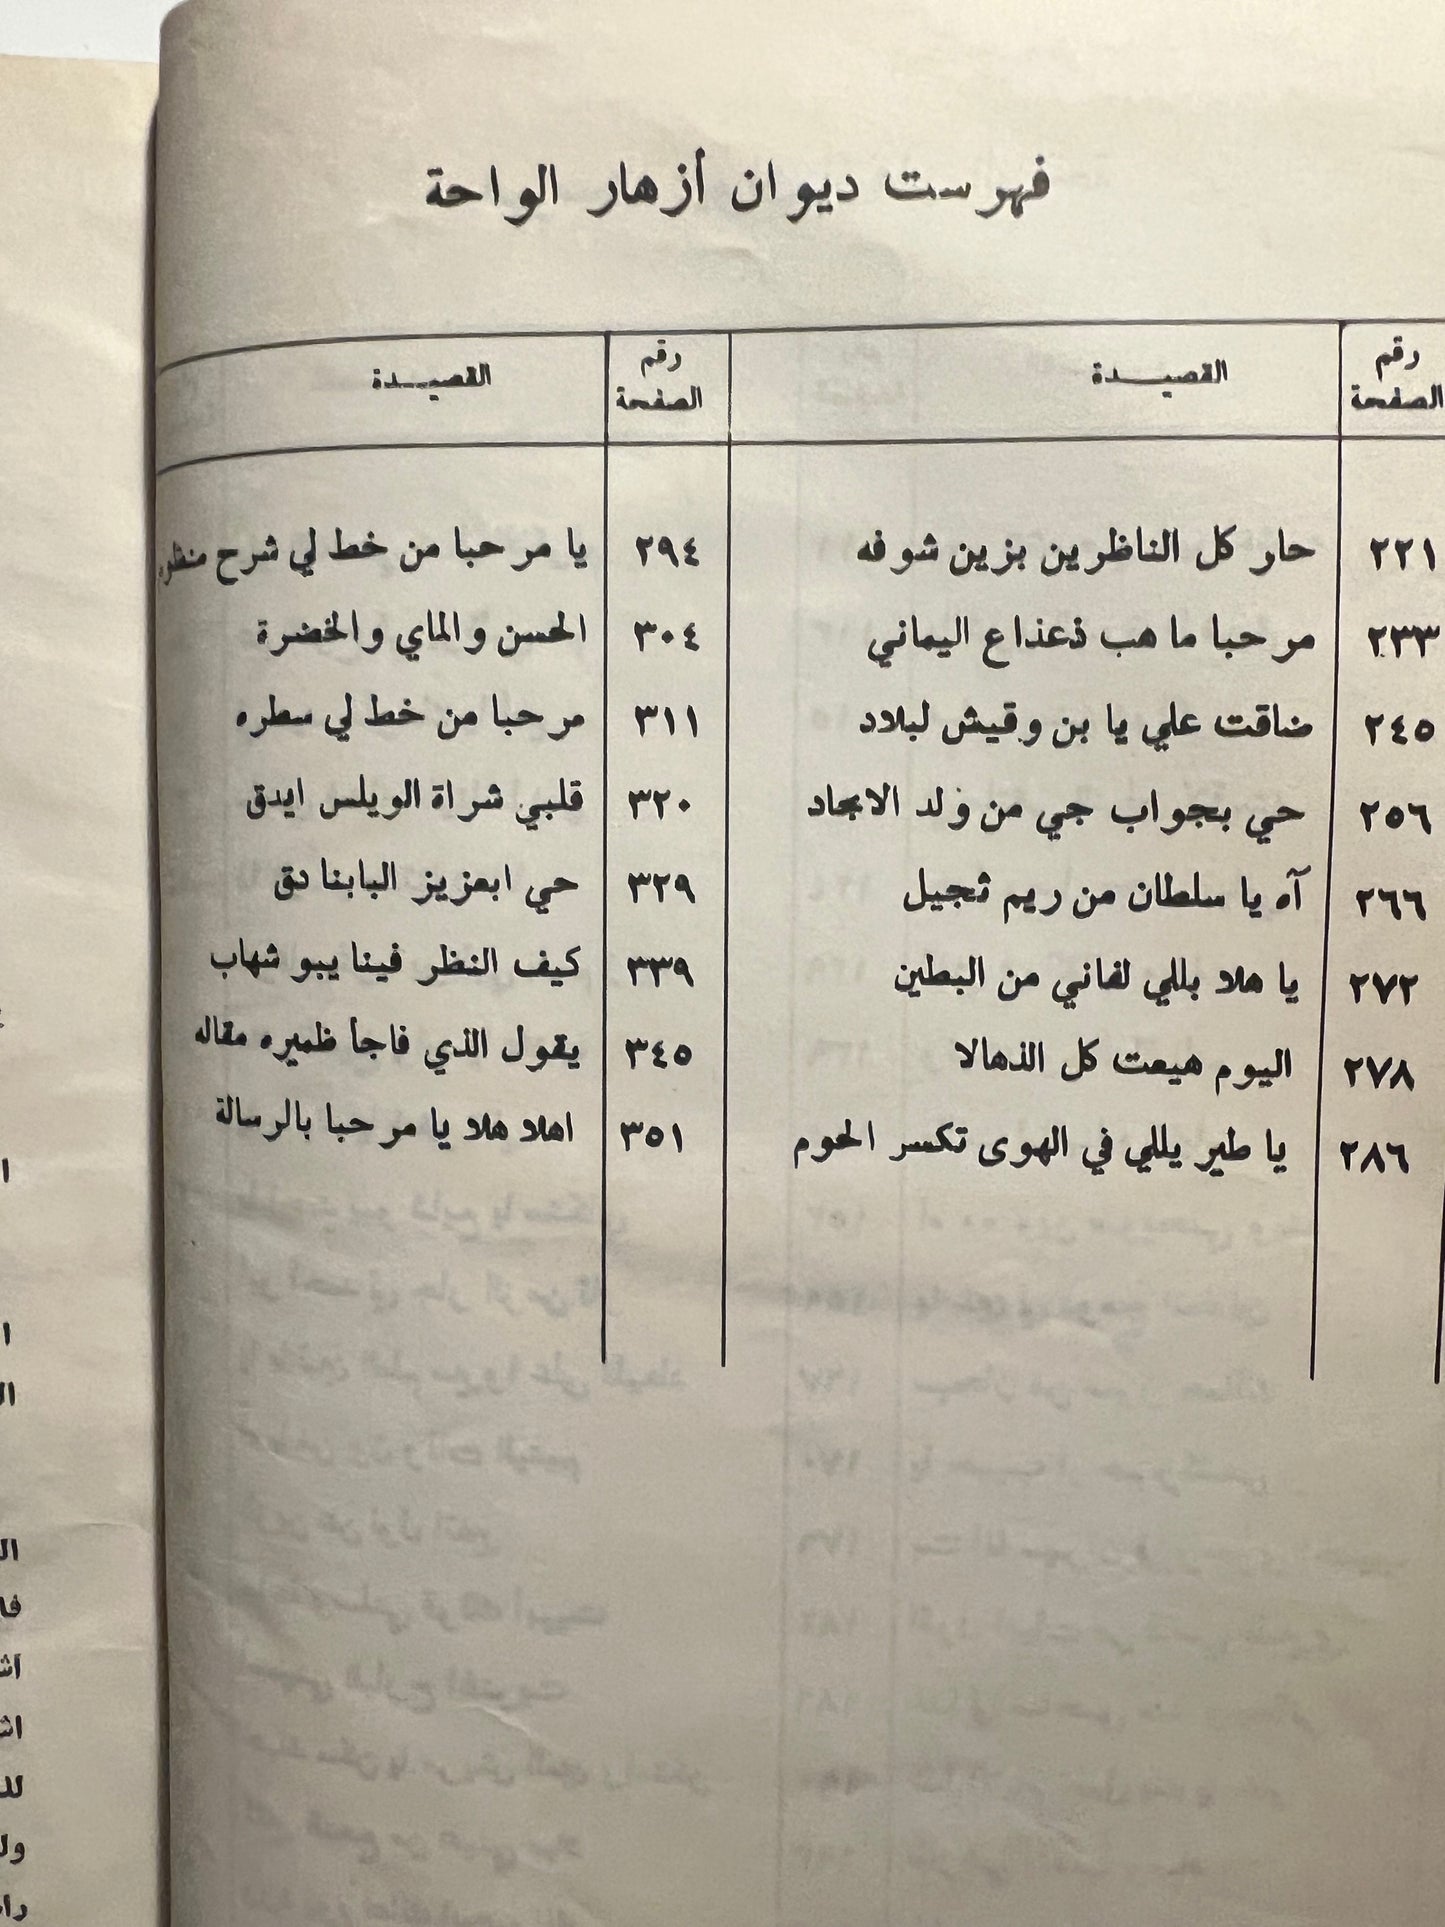 فهرست ديوان أزهار الواحة
رقم الصفحة القصيدة رقم الصفحة القصيدة
٢٢١ حار كل الناظرين بزين شوفه
٢٣٣ مرحبا ما هب ذعذاع اليماني
٢٤٥ ضاقت علي يا بن وقيش لبلاد
٢٥٦ حي بجواب جي من ولد الامجاد
٢٦٦ آه يا سلطان من ريم ثجيل
٢٧٢ يا هلا بللي لفاني من البطين
٢٧٨ اليوم هيعت كل الذهالا
٢٨٦ يا طير يللي في الهوى تكسر الحوم
٢٩٤ يا مرحبا من خط لي شرح منظوم
٣٠٤ الحسن والماي والخضرة
٣١١ مرحبا من خط لي سطره
٣٢٠ قلبي شراة الويلس ايدق
٣٢٩ حي ابعزيز البابنا دق
٣٣٩ كيف النظر فينا يبو شهاب
٣٤٥ يقول الذي فاجأ ظميره مقاله
٣٥١ اهلا هلا يا مرحبا بالرسالة